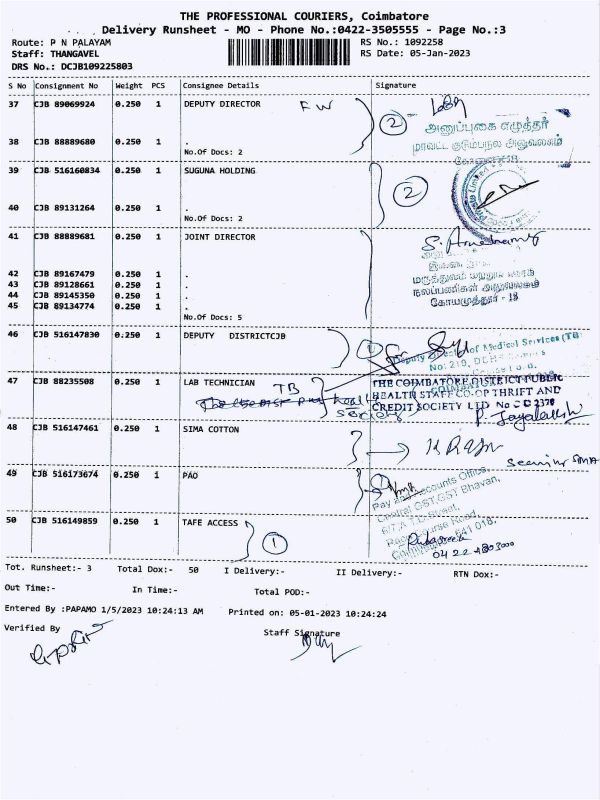 THE PROFESSIONAL COURIERS, Coimbatore
Delivery Runsheet - MO - Phone No.:0422-3505555 - Page No.:3
Route: P N PALAYAM RS No.: 1092258
Staff: THANGAVEL RS Date: 05-Jan-2023
DRS No.: DCJB109225803
S No Consignment No Weight PCS Consignee Details Signature
37 CJB 89069924 0.250 1 DEPUTY DIRECTOR FW
2
அனுப்புகை எழுத்தர்
38 CJB 88889680 0.250 1 .
மாவட்ட குடும்பநல அலுவலகம்
No.Of Docs: 2
39 CJB 516160834 0.250 1 SUGUNA HOLDING
2
Private Limited
40 CJB 89131264 0.250 1 .
No.Of Docs: 2
41 CJB 88889681 0.250 1 JOINT DIRECTOR
42 CJB 89167479 0.250 1 .
மருத்துவம் மற்றும் ஊரக
43 CJB 89128661 0.250 1 .
நலப்பணிகள் அலுவலகம்
44 CJB 89145350 0.250 1 .
கோயமுத்தூர் - 18
45 CJB 89134774 0.250 1 .
No.Of Docs: 5
46 CJB 516147830 0.250 1 DEPUTY DISTRICTCJB
1
Deputy Director of Medical Services (TB)
No: 219,
47 CJB 88235508 0.250 1 LAB TECHNICIAN TB
THE COIMBATORE DISTRICT PUBLIC
HEALTH STAFF CO-OP THRIFT AND
CREDIT SOCIETY LTD No CC 2370
health
society
P. Jayalakshmi
48 CJB 516147461 0.250 1 SIMA COTTON
SIMA
49 CJB 516173674 0.250 1 PAO
Pay and Accounts Office,
Central GST, GST Bhavan,
6/7, A.T.D. Street,
Race Course Road,
Coimbatore - 641 018.
50 CJB 516149859 0.250 1 TAFE ACCESS
1
0422 4803000
Tot. Runsheet:- 3 Total Dox:- 50 I Delivery:- II Delivery:- RTN Dox:-
Out Time:- In Time:- Total POD:-
Entered By :PAPAMO 1/5/2023 10:24:13 AM Printed on: 05-01-2023 10:24:24
Verified By Staff Signature